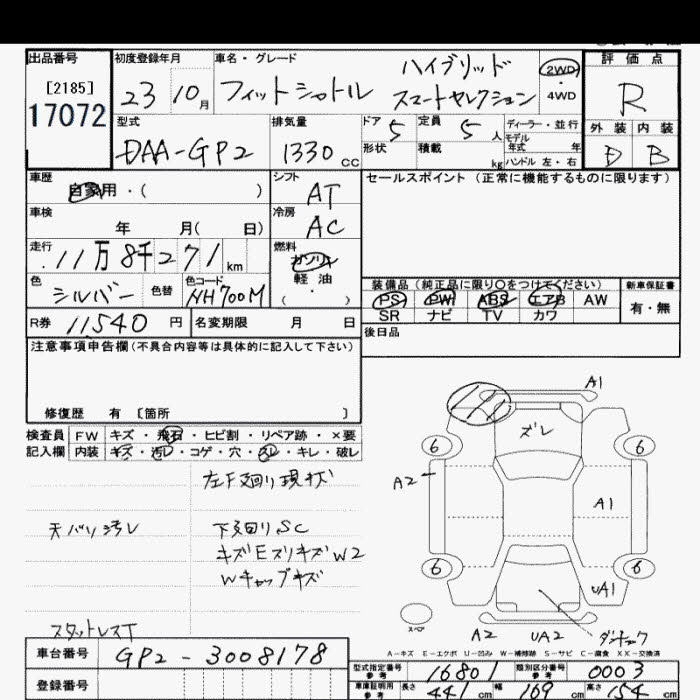 出品番号
[2185]
17072
初度登録年月
23 10 月
車名・グレード
フィットシャトル ハイブリッド
スマートセレクション
2WD
4WD
評価点
R
外装 内装
D B
型式
DAA-GP2
排気量
1330 cc
ドア 5 定員 5 人
形状 積載 kg
ディーラー・並行
モデル年式 年
ハンドル 左・右
車歴
自家用・( )
シフト
AT
セールスポイント (正常に機能するものに限ります)
車検
年 月( 日)
冷房
AC
走行
11万8千271 km
燃料
ガソリン
軽油
( )
色
シルバー 色替
色コード
NH700M
装備品(純正品に限り○をつけてください)
PS PW ABS エアB AW
SR ナビ TV カワ
新車保証書
有・無
R券 11540 円
名変期限 月 日
後日品
注意事項申告欄(不具合内容等は具体的に記入して下さい)
修復歴 有 [箇所 ]
検査員 FW キズ・飛石・ヒビ割・リペア跡・×要
記入欄 内装 キズ・汚レ・コゲ・穴・スレ・キレ・破レ
左F廻り現状
天バリ汚レ
下廻りSC
キズEスリキズW2
Wキャップキズ
スタットレスT
A1
ズレ
6
6
A2
A1
6
6
UA1
スペア
A2
UA2
A-キズ E-エクボ U-凹み W-補修跡 S-サビ C-腐食 XX-交換済
車台番号
GP2-3008178
登録番号
型式指定番号
参考
16801
類別区分番号
参考
0003
車庫証明用
参考
長さ 441 cm 幅 169 cm 高さ 154 cm